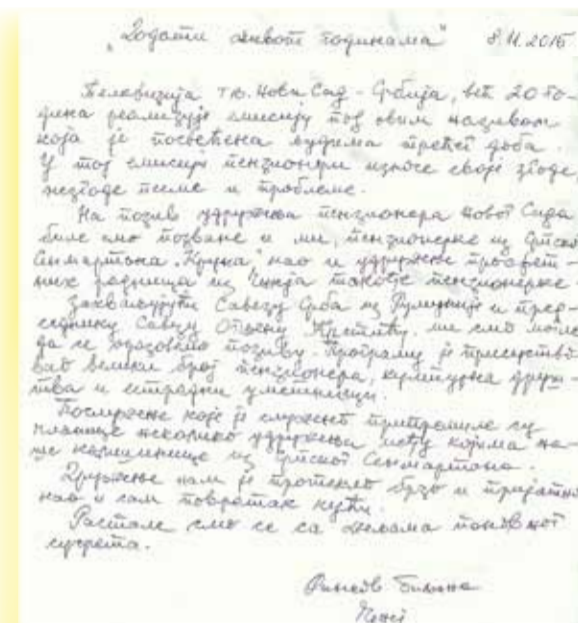 „Додати живот годинама" 8.11.2015
Телевизија т.в. Нови Сад - Србија, већ 20 го-
дина реализује емисију под овим називом
која је посвећена људима трећег доба.
У тој емисији пензионери износе своје згоде,
незгоде песме и проблеме.
На позив удружења пензионера Новог Сада
биле смо позване и ми, пензионерке из Српског
Сенмартона „Круна" као и удружење просвет-
них радница из Чнеја такође пензионерке.
Захваљујући Савезу Срба из Румуније и пред-
седнику Савеза Огњену Крстићу, ми смо могле
да се одазовемо позиву. Програму је присуство
вао велики број пензионера, културна друш-
тва и естрадни уметници.
Послужење које је служено припремиле су
чланице неколико удружења међу којима на-
ше из Српског Сенмартона.
Дружење нам је протекло брзо и пријатно
као и сам повратак кући.
Растале смо се са жељама поновног
сусрета.